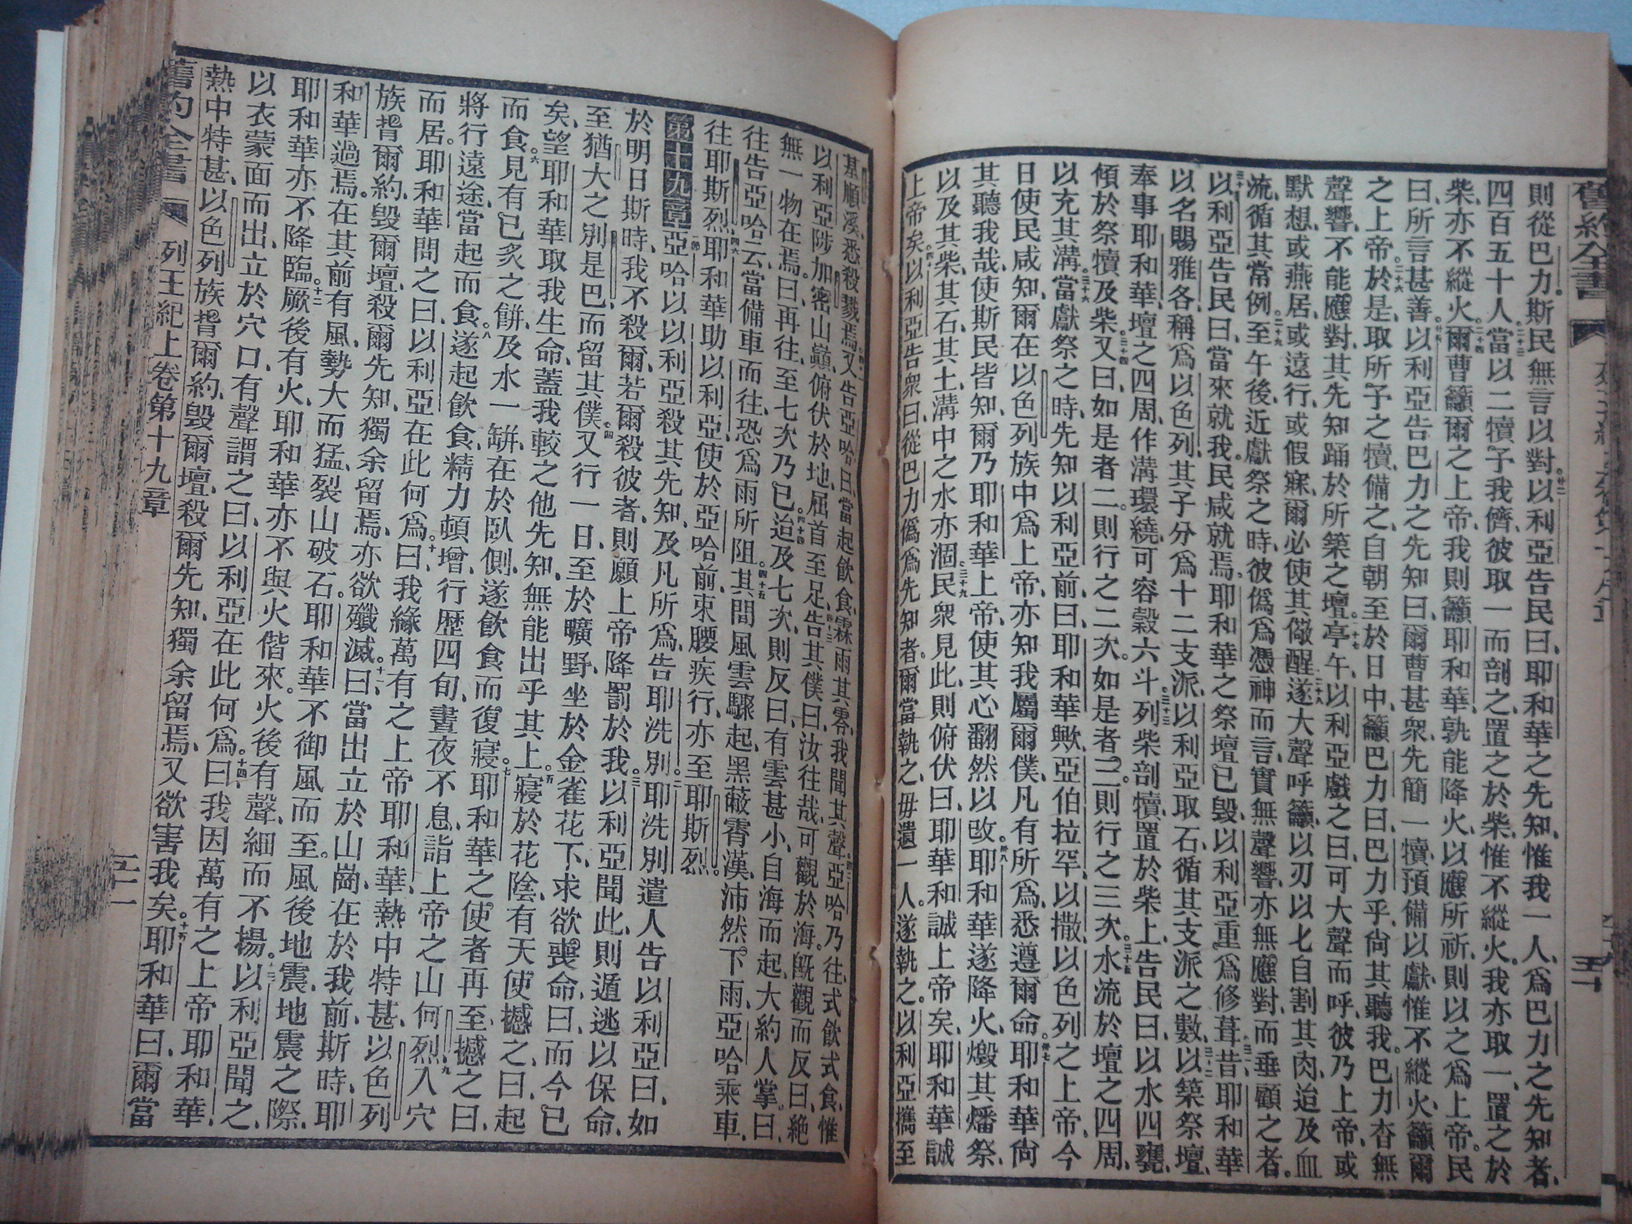 則從巴力斯民無言以對以利亞告民曰耶和華之先知惟我一人爲巴力之先知者
四百五十人當以二犢予我儕彼取一而剖之置之於柴惟不縱火我亦取一置之於
柴亦不縱火爾曹籲爾之上帝我則籲耶和華孰能降火以應所祈則以之爲上帝民
曰所言甚善以利亞告巴力之先知曰爾曹甚衆先簡一犢預備以獻惟不縱火籲爾
之上帝於是取所予之犢備之自朝至於日中籲巴力曰巴力乎尙其聽我巴力杳無
聲響不能應對其先知踊於所築之壇亭午以利亞戲之曰可大聲而呼彼乃上帝或
默想或燕居或遠行或假寐爾必使其儆醒遂大聲呼籲以刃以匕自割其肉迨及血
流循其常例至午後近獻祭之時彼僞爲憑神而言實無聲響亦無應對而垂顧之者
以利亞告民曰當來就我民咸就焉耶和華之祭壇已毀以利亞重爲修葺昔耶和華
以名賜雅各稱爲以色列其子分爲十二支派以利亞取石循其支派之數以築祭壇
奉事耶和華壇之四周作溝環繞可容穀六斗列柴剖犢置於柴上告民曰以水四甕
傾於祭犢及柴又曰如是者二則行之二次如是者三則行之三次水流於壇之四周
以充其溝當獻祭之時先知以利亞前曰耶和華歟亞伯拉罕以撒以色列之上帝今
日使民咸知爾在以色列族中爲上帝亦知我屬爾僕凡有所爲悉遵爾命耶和華尙
其聽我哉使斯民皆知爾乃耶和華上帝使其心翻然以改耶和華遂降火燬其燔祭
以及其柴其石其土溝中之水亦涸民衆見此則俯伏曰耶和華誠上帝矣耶和華誠
上帝矣以利亞告衆曰從巴力僞爲先知者爾當執之毋遺一人遂執之以利亞攜至
基順溪悉殺戮焉又告亞哈曰當起飮食霖雨其零我聞其聲亞哈乃往式飮式食惟
以利亞陟加密山巔俯伏於地屈首至足告其僕曰汝往哉可觀於海旣觀而反曰絕
無一物在焉曰再往至七次乃已迨及七次則反曰有雲甚小自海而起大約人掌曰
往告亞哈云當備車而往恐爲雨所阻其間風雲驟起黑蔽霄漢沛然下雨亞哈乘車
往耶斯烈耶和華助以利亞使於亞哈前束腰疾行亦至耶斯烈
第十九章亞哈以以利亞殺其先知及凡所爲告耶洗別耶洗別遣人告以利亞曰如
於明日斯時我不殺爾若爾殺彼者則願上帝降罰於我以利亞聞此則遁逃以保命
至猶大之別是巴而留其僕又行一日至於曠野坐於金雀花下求欲喪命曰而今已
矣望耶和華取我生命蓋我較之他先知無能出乎其上寢於花陰有天使撼之曰起
而食見有已炙之餅及水一缾在於臥側遂飮食而復寢耶和華之使者再至撼之曰
將行遠途當起而食遂起飮食精力頓增行歷四旬晝夜不息詣上帝之山何烈入穴
而居耶和華問之曰以利亞在此何爲曰我緣萬有之上帝耶和華熱中特甚以色列
族背爾約毀爾壇殺爾先知獨余留焉亦欲殲滅曰當出立於山崗在於我前斯時耶
和華過焉在其前有風勢大而猛裂山破石耶和華不御風而至風後地震地震之際
耶和華亦不降臨厥後有火耶和華亦不與火偕來火後有聲細而不揚以利亞聞之
以衣蒙面而出立於穴口有聲謂之曰以利亞在此何爲曰我因萬有之上帝耶和華
熱中特甚以色列族背爾約毀爾壇殺爾先知獨余留焉又欲害我矣耶和華曰爾當
舊約全書 列王紀上卷第十九章